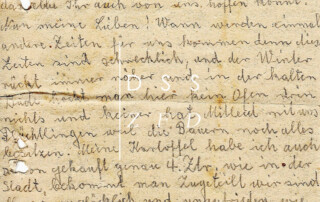 das selbe Ihr auch von uns hoffen könnt.
Nun meine Lieben! Wann werden einmal
andere Zeiten für uns kommen denn die
Zeiten sind schrecklich, und der Winter
rückt immer näher und in der kalten
hier kein Ofen drin
nichts und keiner hat Mitleid mit uns
Flüchtlingen wo die Bauern noch alles
besitzen. Meine Kartoffel habe ich auch
schon gekauft genau 4. Ztr, wie in der
Stadt, bekommt man Zugeteilt wir sind
DSS